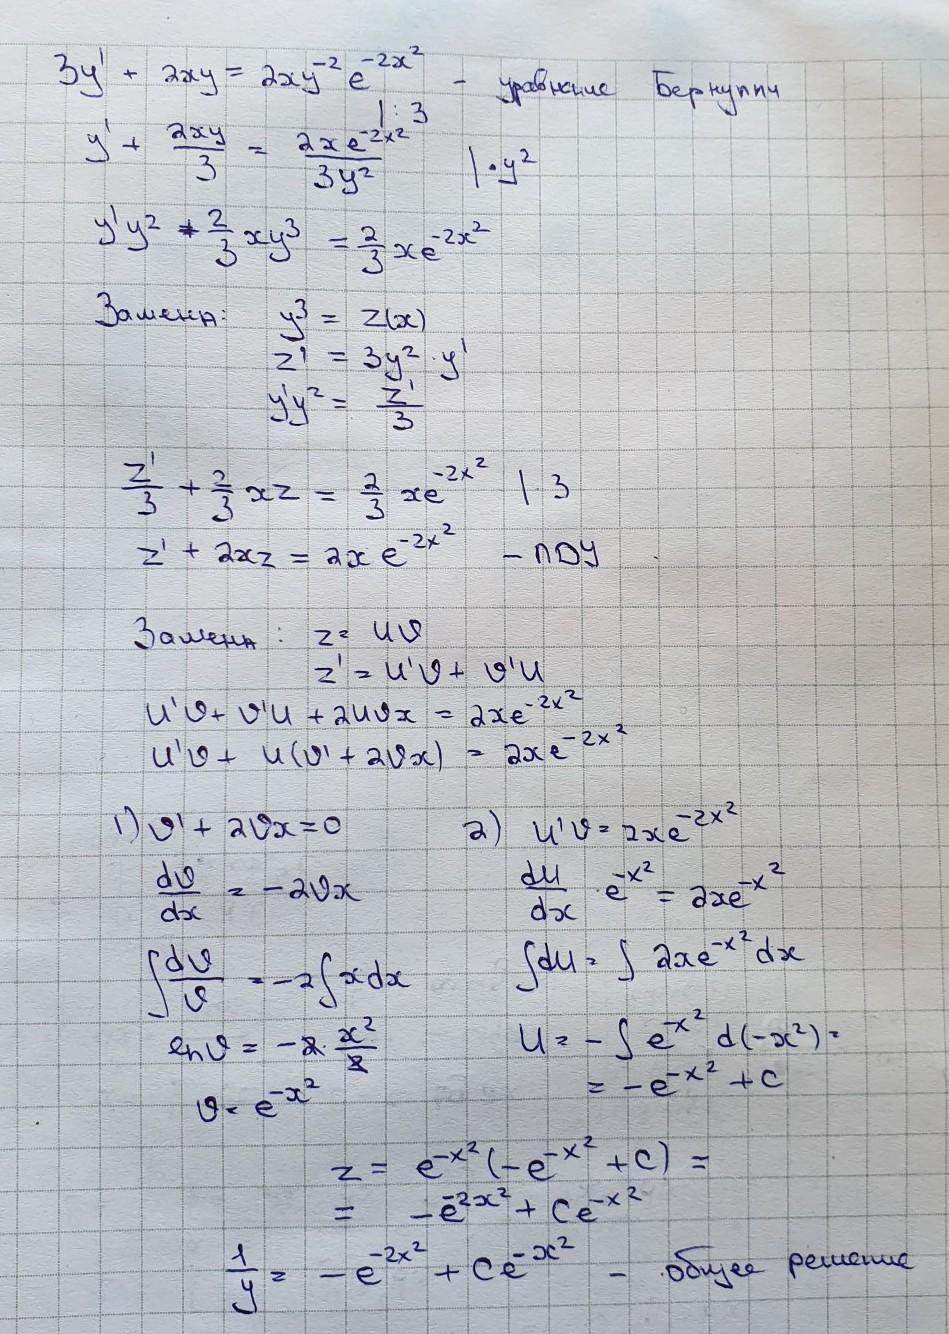 3y' + 2xy = 2xy⁻² e^(-2x²) - уравнение Бернулли
|:3
y' + 2xy/3 = 2xe^(-2x²)/3y² | · y²
y'y² + 2/3 xy³ = 2/3 xe^(-2x²)
Замена: y³ = z(x)
z' = 3y² · y'
y'y² = z'/3
z'/3 + 2/3 xz = 2/3 xe^(-2x²) | · 3
z' + 2xz = 2x e^(-2x²) - ЛДУ
Замена: z = uϑ
z' = u'ϑ + ϑ'u
u'ϑ + ϑ'u + 2uϑx = 2xe^(-2x²)
u'ϑ + u(ϑ' + 2ϑx) = 2xe^(-2x²)
1) ϑ' + 2ϑx = 0
dϑ/dx = -2ϑx
∫dϑ/ϑ = -2∫xdx
lnϑ = -2 · x²/2
ϑ = e^(-x²)
2) u'ϑ = 2xe^(-2x²)
du/dx · e^(-x²) = 2xe^(-x²)
∫du = ∫ 2xe^(-x²) dx
u = -∫ e^(-x²) d(-x²) =
= -e^(-x²) + c
z = e^(-x²) (-e^(-x²) + c) =
= -e^(-2x²) + Ce^(-x²)
1/y = -e^(-2x²) + Ce^(-x²) - общее решение